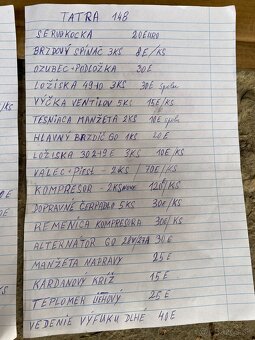 TATRA 148
SERVOKOCKA 20EURO
BRZDOVÝ SPÍNAČ 3KS 8E/KS
OZUBEC + PODLOŽKA 30E
LOŽISKA 4910 3KS 30E spolu
VÝČKA VENTILOV 5KS 15E/KS
TESNIACA MANŽETA 2KS 10E spolu
HLAVNÝ BRZDIČ GO 1KS 20E
LOŽISKA 30219E 3KS 10E/KS
VALEC + PIEST - 2KS / 70E/KS
KOMPRESOR - 2KS 120/KS
DOPRAVNÉ ČERPADLO 5KS 30E/KS
REMENICA KOMPRESORA 30E/KS
ALTERNÁTOR GO 28V27A 30E
MANŽETA NÁPRAVY 25E
KARDANOVÝ KRÍŽ 15E
TEPLOMER 25E
VEDENIE VÝFUKU DLHÉ 40E
/KS
E
KS
E
E